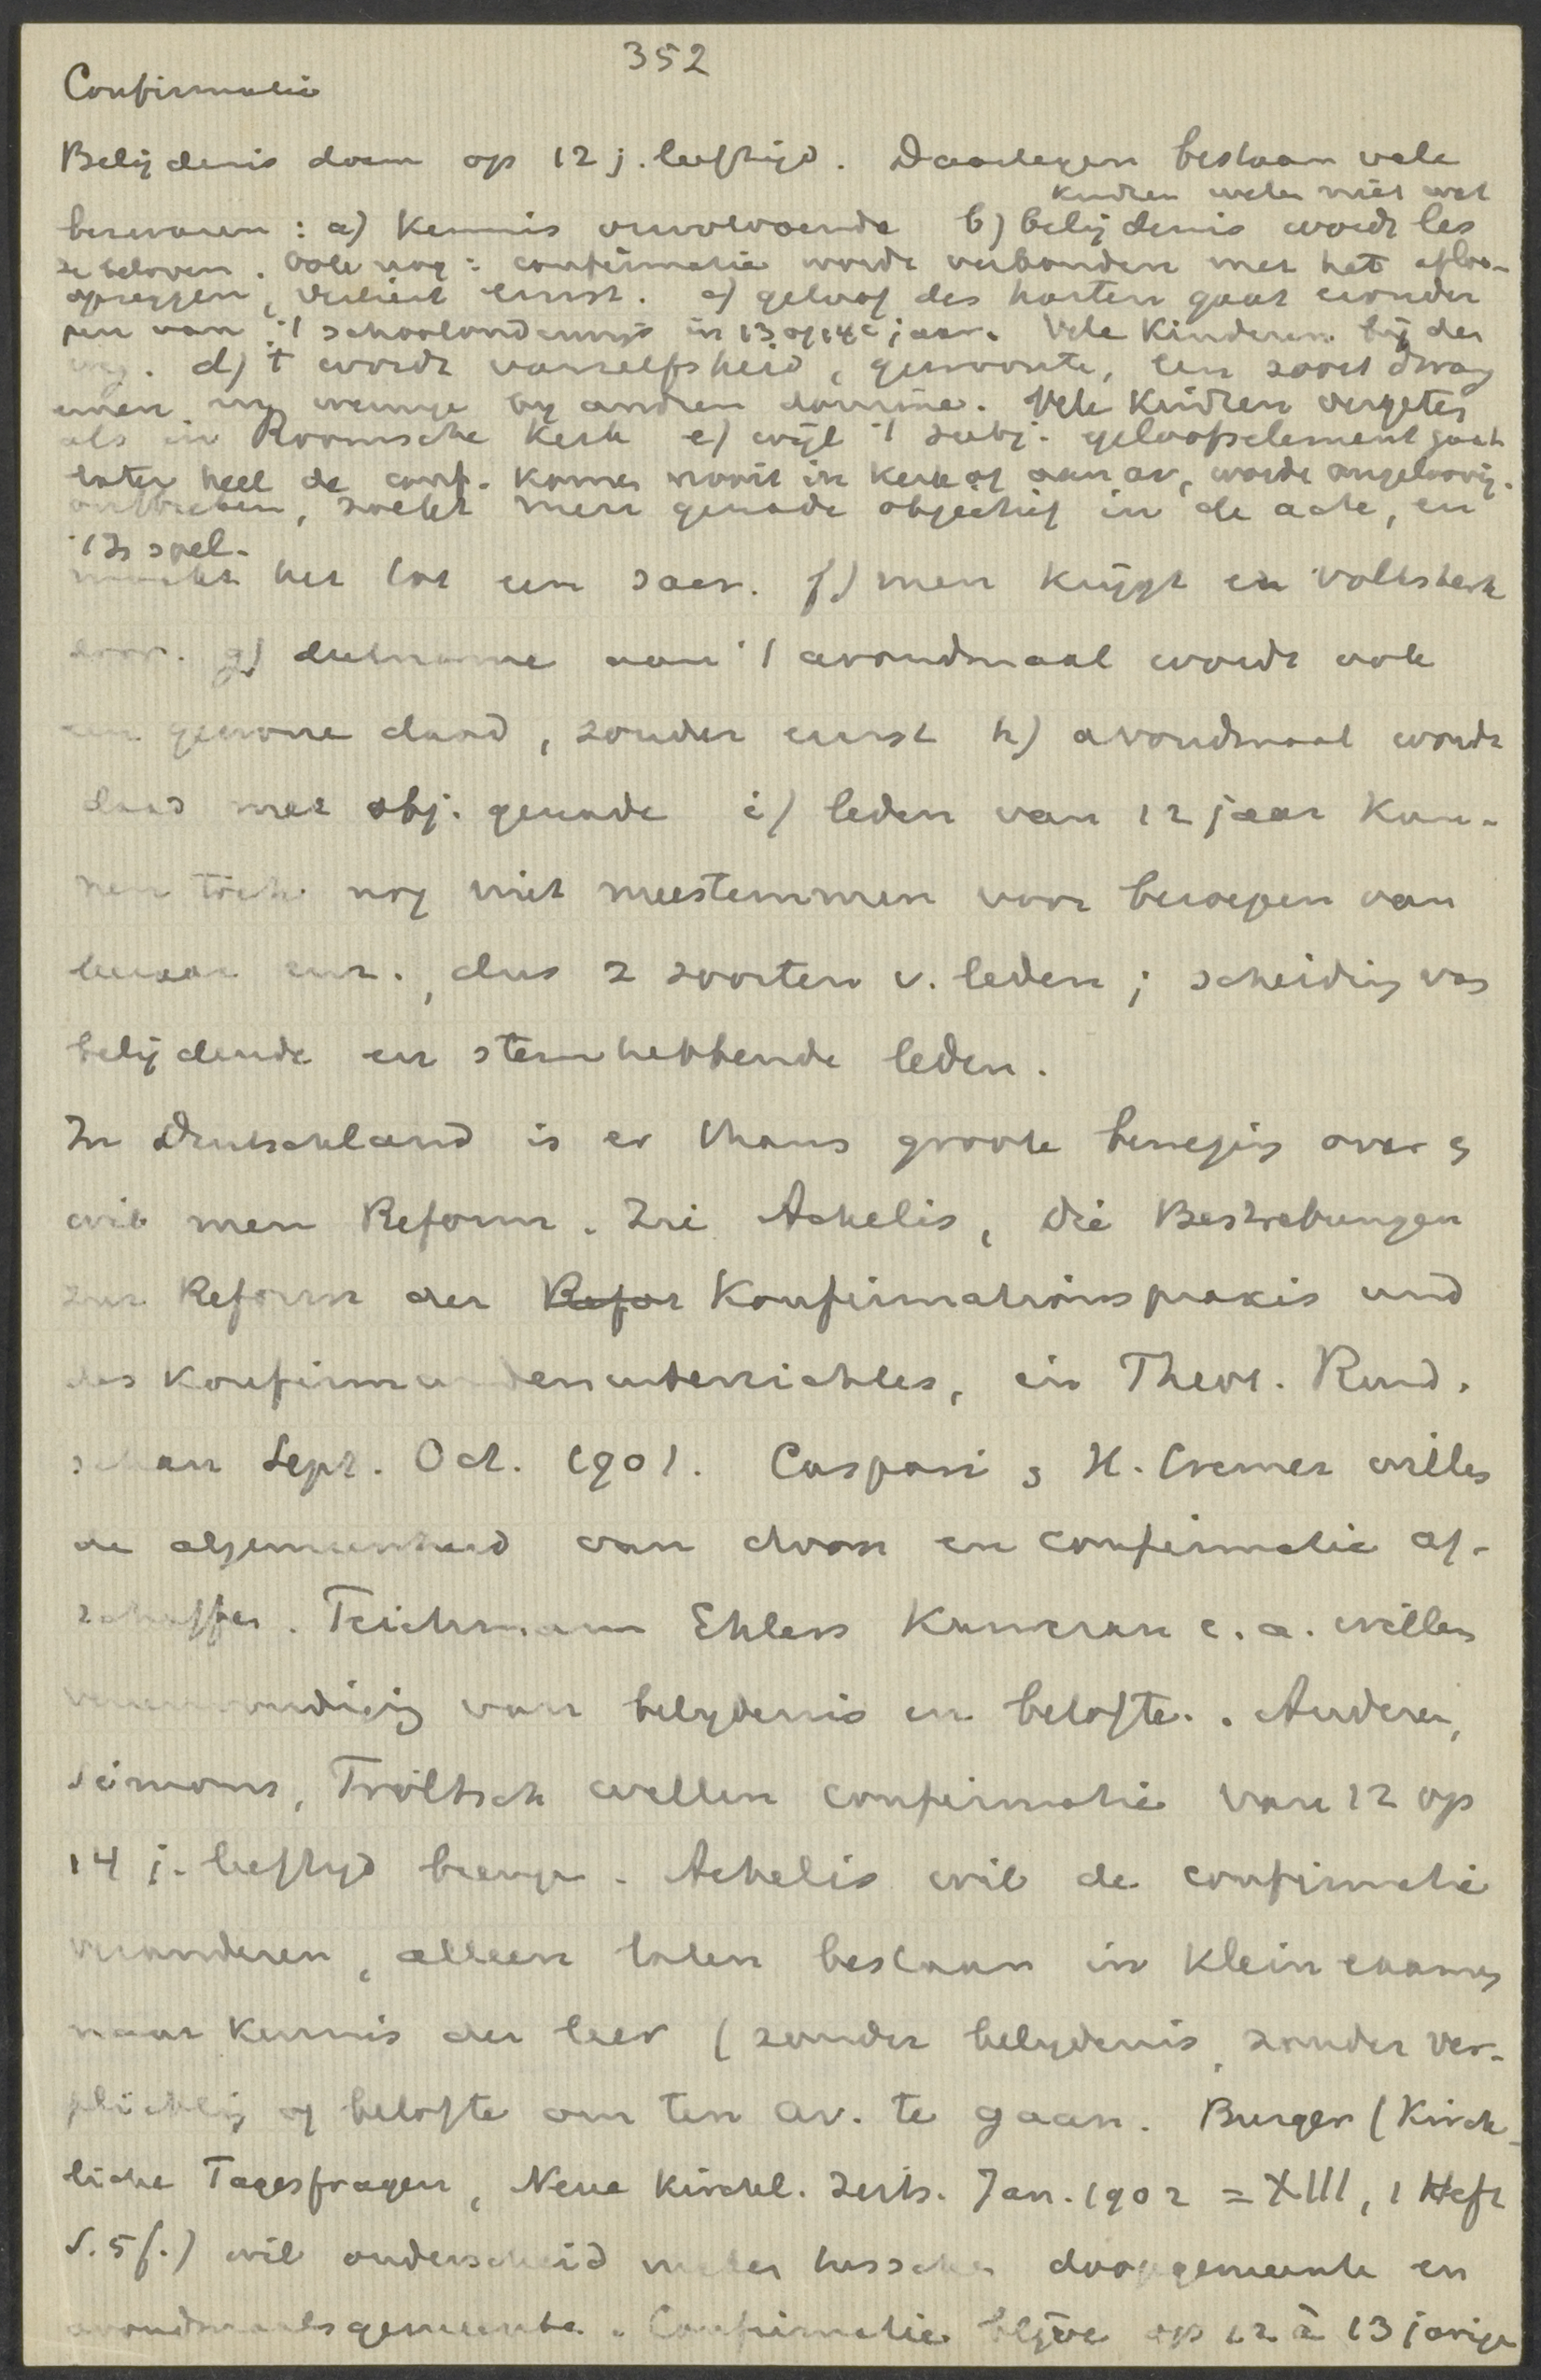 352
Confirmatie
Belijdenis doen op 12 j. leeftijd. Daartegen bestaan vele
kindren weten niet wat
bezwaren : a) kennis onvoldoende b) belijdenis wordt les
ze beloven. Ook nog : confirmatie wordt verbonden met het afloo-
opzeggen, verliest ernst. c) geloof des harten gaat eronder
pen van 't schoolonderwijs in 13 of 14e jaar. Vele kinderen bij den
weg. d) 't wordt vanzelfsheid, gewoonte, een soort dwang
eenen, nog weinige by andren domine. Vele kindren vergeten
als in Roomsche kerk e) wijl 't subj. geloofselement gaat
later heel de conf. komen nooit in kerk of aan av, worde ongeloovig.
ontbreken, zoekt men genade objectief in de acte, en
't Is spel.
maakt het tot een sacr. f) men krijgt en volkskerk
door. g) deelname aan 't avondmaal wordt ook
een gewone daad, zonder ernst h) avondmaal wordt
daad met obj. genade i) leden van 12 jaar kun-
nen toch nog niet meestemmen voor beroepen van
leeraar enz., dus 2 soorten v. leden ; scheiding van
belijdende en stemhebbende leden.
In Deutschland is er thans groote beweging over &
wil men Reform. Zie Achelis, Die Bestrebungen
zur Reform der Refor Konfirmationspraxis und
des Konfirmandenunterrichtes, in Theol. Rund.
schau Sept. Oct. 1901. Caspari & H. Cremer willen
de algemeenheid van doop en confirmatie af-
schaffen. Teichmann Ehlers e. a. willen
vereenvoudiging van belydenis en belofte. Anderen,
Simons, Tröltsch willen confirmatie van 12 op
14 j. leeftyd brengen. Achelis wil de confirmatie
veranderen, alleen laten bestaan in klein examen
naar kennis der leer (zonder belydenis, zonder ver-
plichting of belofte om ten av. te gaan. Burger (Kirch-
liche Tagesfragen, Neue Kirchl. Zeits. Jan. 1902 = XIII, 1 Heft
S. 5 f.) wil onderscheid maken tusschen doopgemeente en
avondmaalsgemeente. Confirmatie blijve op 12 à 13 jarige